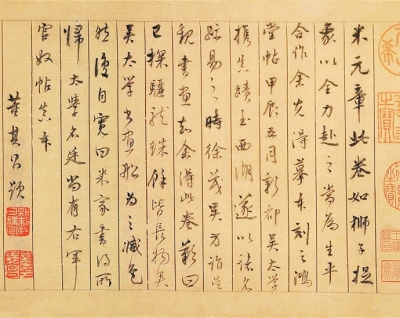 米元章此卷如獅子捉
象以全力赴之當為生平
合作余先得摹本刻之鴻
堂帖甲辰五月新都吳太學
攜真蹟至西湖遂以諸名
蹟易之時徐茂吳方詣吳
觀書畫知余得此卷歎曰
已探驪龍珠餘皆長物矣
吳太學書畫船為之減色
然復自寬曰米家書得所
歸太學名廷尚有右軍
官奴帖真本
董其昌題